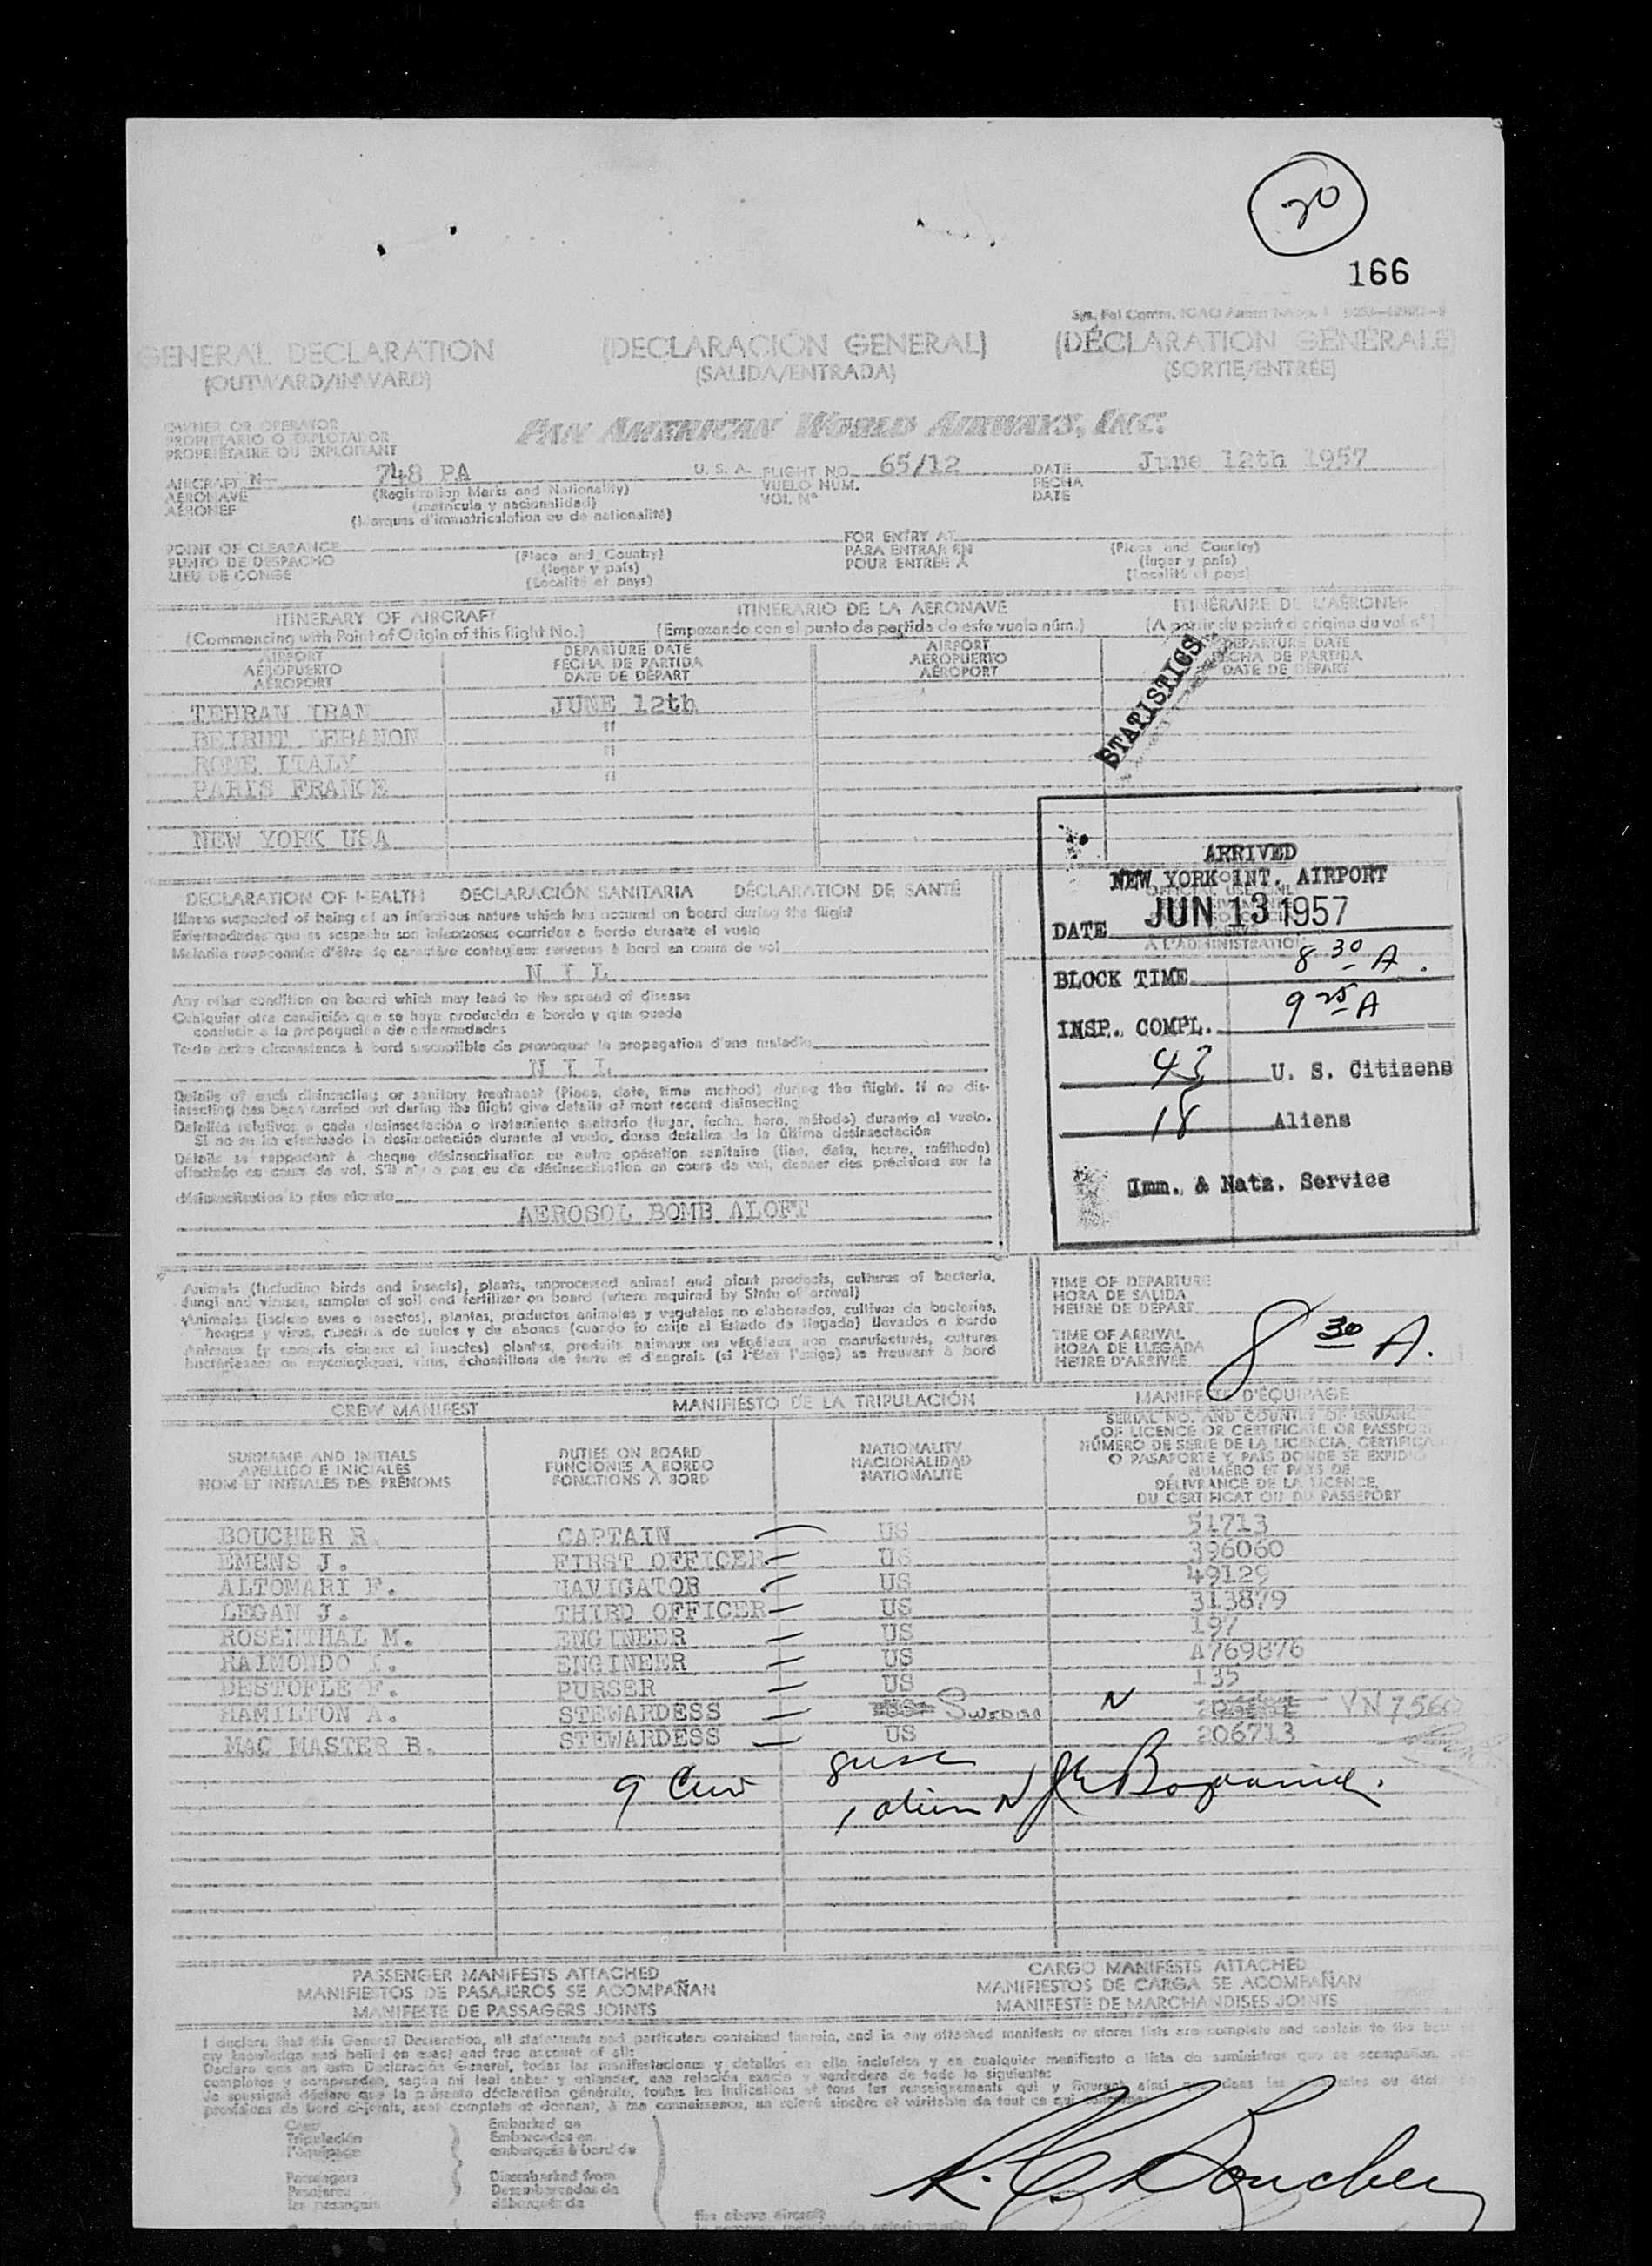 20
166
GENERAL DECLARATION (DECLARACIÓN GENERAL) (DÉCLARATION GÉNÉRALE)
(OUTWARD/INWARD) (SALIDA/ENTRADA) (SORTIE/ENTRÉE)
OWNER OR OPERATOR
PROPIETARIO O EXPLOTADOR
PROPRIÉTAIRE OU EXPLOITANT
PAN AMERICAN WORLD AIRWAYS, INC.
AIRCRAFT N 748 PA U. S. A. FLIGHT NO. 65/12 DATE June 12th 1957
AERONAVE (Registration Marks and Nationality) VUELO NÚM. FECHA
AÉRONEF (matrícula y nacionalidad) VOL N° DATE
(Marques d'immatriculation ou de nationalité)
POINT OF CLEARANCE (Place and Country) FOR ENTRY AT (Place and Country)
PUNTO DE DESPACHO (lugar y país) PARA ENTRAR EN (lugar y país)
LIEU DE CONGÉ (Localité et pays) POUR ENTRÉE À (Localité et pays)
ITINERARY OF AIRCRAFT ITINERARIO DE LA AERONAVE ITINÉRAIRE DE L'AÉRONEF
(Commencing with Point of Origin of this flight No.) (Empezando con el punto de partida de este vuelo núm.) (A partir du point d'origine du vol n°)
AIRPORT DEPARTURE DATE AIRPORT DEPARTURE DATE
AEROPUERTO FECHA DE PARTIDA AEROPUERTO FECHA DE PARTIDA
AÉROPORT DATE DE DÉPART AÉROPORT DATE DE DÉPART
STATISTICS
TEHRAN IRAN JUNE 12th
BEIRUT LEBANON "
ROME ITALY "
PARIS FRANCE "
NEW YORK USA
ARRIVED
NEW YORK INT. AIRPORT
DATE JUN 13 1957
À L'ADMINISTRATION
BLOCK TIME 8 30 A.
INSP. COMPL. 9 25 A
43 U. S. Citizens
18 Aliens
Imm. & Natz. Service
DECLARATION OF HEALTH DECLARACIÓN SANITARIA DÉCLARATION DE SANTÉ
Illness suspected of being of an infectious nature which has occured on board during the flight
Enfermedades que se sospecha son infecciosas ocurridas a bordo durante el vuelo
Maladie soupçonnée d'être de caractère contagieux survenue à bord en cours de vol
N I L
Any other condition on board which may lead to the spread of disease
Cualquier otra condición que se haya producido a bordo y que pueda
conducir a la propagación de enfermedades
Toute autre circonstance à bord susceptible de provoquer la propagation d'une maladie
N I L
Details of each disinsecting or sanitary treatment (Place, date, time method) during the flight. If no dis-
insecting has been carried out during the flight give details of most recent disinsecting
Detalles relativos a cada desinsectación o tratamiento sanitario (lugar, fecha, hora, método) durante el vuelo.
Si no se ha efectuado la desinsectación durante el vuelo, dense detalles de la última desinsectación
Détails se rapportant à chaque désinsectisation ou autre opération sanitaire (lieu, date, heure, méthode)
effectuée en cours de vol. S'il n'y a pas eu de désinsectisation en cours de vol, donner des précisions sur la
désinsectisation la plus récente
AEROSOL BOMB ALOFT
Animals (including birds and insects), plants, unprocessed animal and plant products, cultures of bacteria,
fungi and viruses, samples of soil and fertilizer on board (where required by State of arrival)
Animales (incluso aves e insectos), plantas, productos animales y vegetales no elaborados, cultivos de bacterias,
hongos y virus, muestras de suelos y de abonos (cuando lo exija el Estado de llegada) llevados a bordo
Animaux (y compris oiseaux et insectes) plantes, produits animaux ou végétaux non manufacturés, cultures
bactériennes ou mycologiques, virus, échantillons de terre et d'engrais (si l'État l'exige) se trouvant à bord
TIME OF DEPARTURE
HORA DE SALIDA
HEURE DE DÉPART
TIME OF ARRIVAL
HORA DE LLEGADA
HEURE D'ARRIVÉE
8 30 A.
CREW MANIFEST MANIFIESTO DE LA TRIPULACIÓN MANIFESTE D'ÉQUIPAGE
SURNAME AND INITIALS
APELLIDO E INICIALES
NOM ET INITIALES DES PRÉNOMS
DUTIES ON BOARD
FUNCIONES A BORDO
FONCTIONS À BORD
NATIONALITY
NACIONALIDAD
NATIONALITÉ
SERIAL NO. AND COUNTRY OF ISSUANCE
OF LICENCE OR CERTIFICATE OR PASSPORT
NÚMERO DE SERIE DE LA LICENCIA, CERTIFICA
O PASAPORTE Y PAÍS DONDE SE EXPIDIÓ
NUMÉRO ET PAYS DE
DÉLIVRANCE DE LA LICENCE,
DU CERTIFICAT OU DU PASSEPORT
BOUCHER R. CAPTAIN US 51713
EMENS J. FIRST OFFICER US 396060
ALTOMARI F. NAVIGATOR US 49129
LEGAN J. THIRD OFFICER US 313879
ROSENTHAL M. ENGINEER US 197
RAIMONDO I. ENGINEER US A769876
DESTOFLE F. PURSER US 135
HAMILTON A. STEWARDESS US SWEDISH N VN 7560
MAC MASTER B. STEWARDESS US 206713
9 Crew 8 usc
1 alien N
PASSENGER MANIFESTS ATTACHED CARGO MANIFESTS ATTACHED
MANIFIESTOS DE PASAJEROS SE ACOMPAÑAN MANIFIESTOS DE CARGA SE ACOMPAÑAN
MANIFESTE DE PASSAGERS JOINTS MANIFESTE DE MARCHANDISES JOINTS
I declare that this General Declaration, all statements and particulars contained therein, and in any attached manifests or stores lists are complete and contain to the best of
my knowledge and belief an exact and true account of all:
Declaro que en esta Declaración General, todas las manifestaciones y detalles en ella incluídos y en cualquier manifiesto o lista de suministros que se acompañan
completos y comprenden, según mi leal saber y entender, una relación exacta y verdadera de todo lo siguiente:
Je soussigné déclare que la présente déclaration générale, toutes les indications et tous les renseignements qui y figurent ainsi que dans les
provisions de bord ci-joints, sont complets et donnent, à ma connaissance, un relevé sincère et véritable de tout ce qui
Crew
Tripulación
l'équipage
Passengers
Pasajeros
les passagers
Embarked on
Embarcados en
embarqués à bord de
Disembarked from
Desembarcados de
débarqués de
the above aircraft
R. C. Boucher